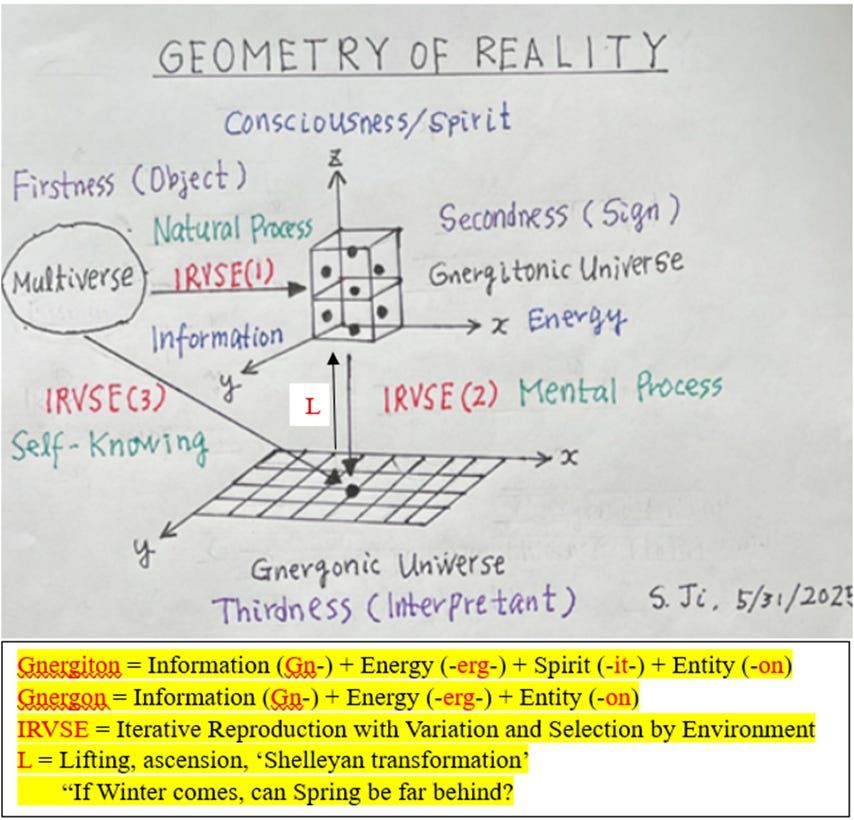 GEOMETRY OF REALITY
Consciousness/Spirit
z
Firstness (Object)
Natural Process
Secondness (Sign)
Multiverse
IRVSE(1)
Gnergitonic Universe
Information
x Energy
y
IRVSE(3)
L
IRVSE(2) Mental Process
Self-Knowing
x
y
Gnergonic Universe
Thirdness (Interpretant)
S. Ji, 5/31/2025
Gnergiton = Information (Gn-) + Energy (-erg-) + Spirit (-it-) + Entity (-on)
Gnergon = Information (Gn-) + Energy (-erg-) + Entity (-on)
IRVSE = Iterative Reproduction with Variation and Selection by Environment
L = Lifting, ascension, ‘Shelleyan transformation’
“If Winter comes, can Spring be far behind?